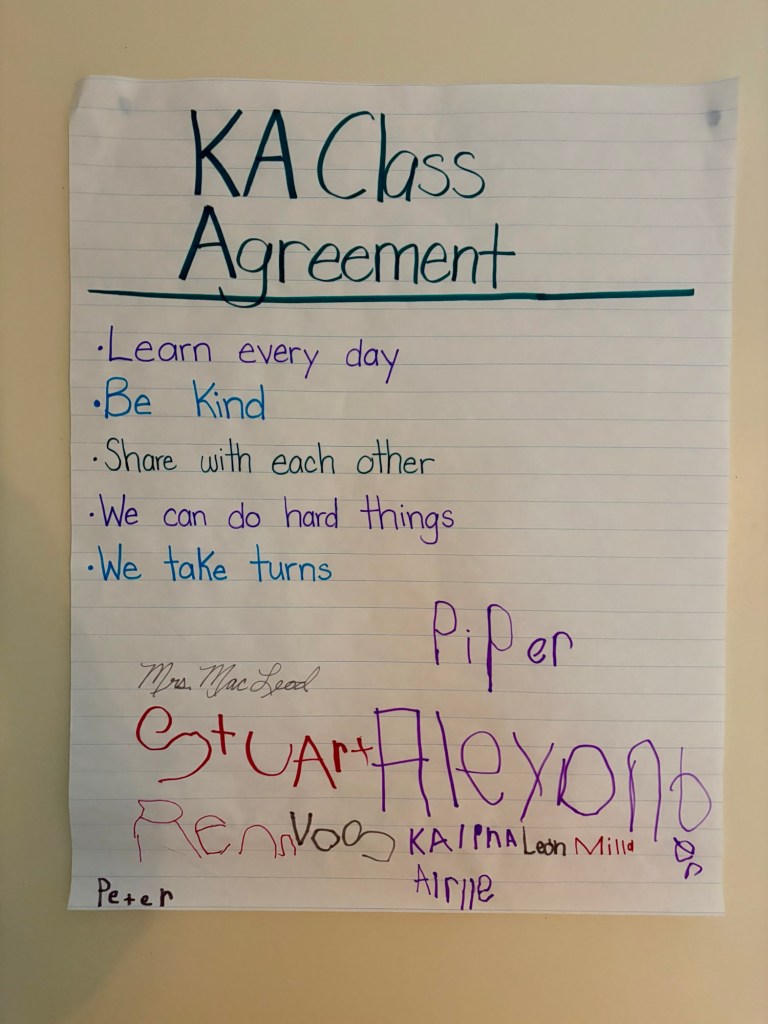 KA Class
Agreement
·Learn every day
·Be Kind
·Share with each other
·We can do hard things
·We take turns
PiPer
Mrs. MacLeod
StUArt
Renn
KAIPHA
León
Milla
Peter